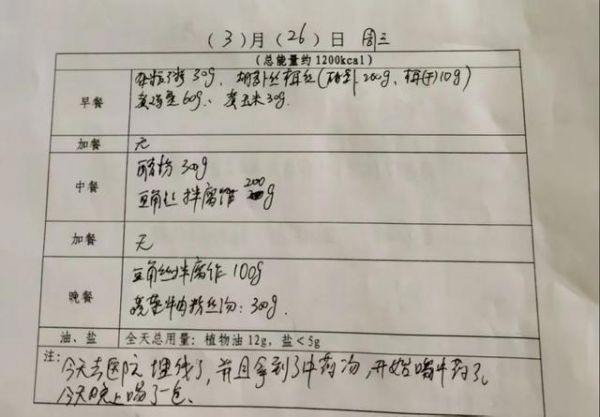 (3)月(26)日 周三
(总能量约1200kcal)
早餐
30g、胡萝卜丝拌丝(胡萝卜200g、10g)
煮鸡蛋60g、煮玉米30g.
加餐
无
中餐
30g
豆角丝拌腐竹 200g
加餐
无
晚餐
豆角丝拌腐竹 100g
牛肉粉丝汤: 300g.
油、盐
全天总用量: 植物油12g, 盐<5g
注:
今天去医院埋线了, 并且拿到了中药汤, 开始喝中药了,
今天晚上喝了一包.